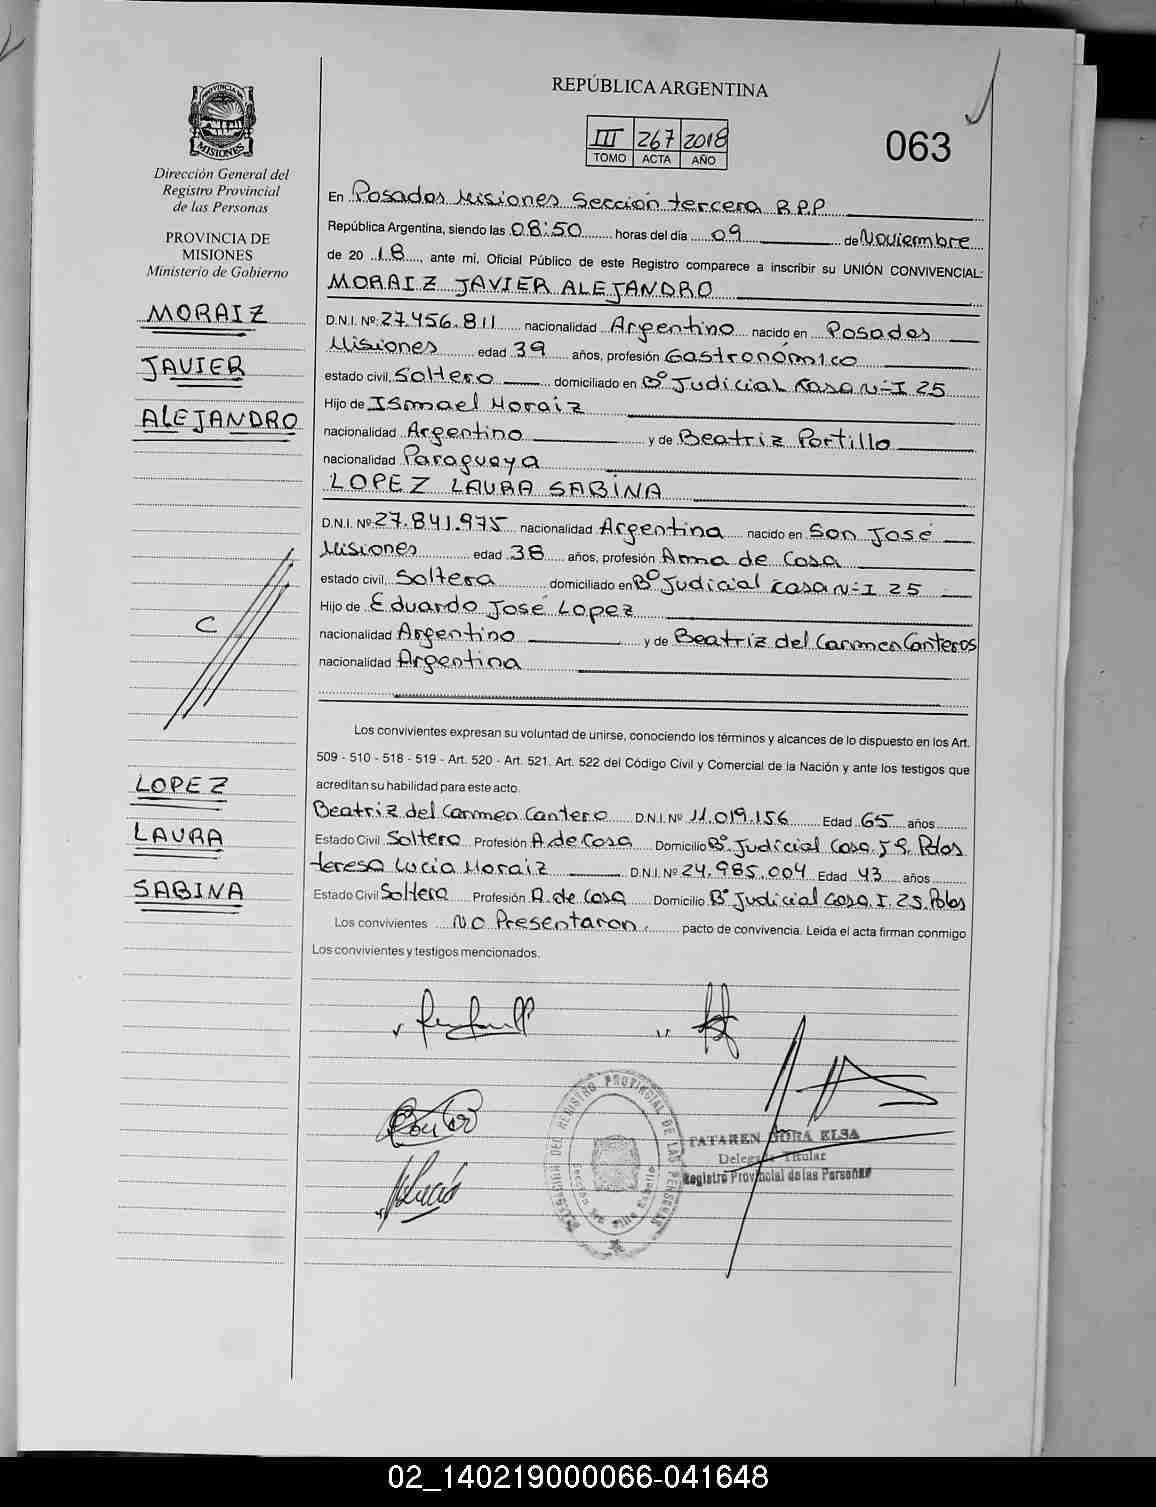 REPÚBLICA ARGENTINA
III 267 2018
TOMO ACTA AÑO
063
PROVINCIA DE
MISIONES
Dirección General del
Registro Provincial
de las Personas
PROVINCIA DE
MISIONES
Ministerio de Gobierno
MORAIZ
JAVIER
ALEJANDRO
C
LOPEZ
LAURA
SABINA
En Posadas Misiones Sección tercera R.P.P
República Argentina, siendo las 08:50 horas del día 09 de Noviembre
de 20 18, ante mí, Oficial Público de este Registro comparece a inscribir su UNIÓN CONVIVENCIAL:
MORAIZ JAVIER ALEJANDRO
D.N.I. Nº 27.456.811 nacionalidad Argentino nacido en Posadas
Misiones edad 39 años, profesión Gastronómico
estado civil, Soltero domiciliado en Bº Judicial Casa Nº I 25
Hijo de Ismael Moraiz
nacionalidad Argentino y de Beatriz Portillo
nacionalidad Paraguaya
LOPEZ LAURA SABINA
D.N.I. Nº 27.841.975 nacionalidad Argentina nacido en San José
Misiones edad 38 años, profesión Ama de Casa
estado civil, Soltera domiciliado en Bº Judicial casa Nº I 25
Hijo de Eduardo José Lopez
nacionalidad Argentino y de Beatriz del Carmen Canteros
nacionalidad Argentina
Los convivientes expresan su voluntad de unirse, conociendo los términos y alcances de lo dispuesto en los Art.
509 - 510 - 518 - 519 - Art. 520 - Art. 521, Art. 522 del Código Civil y Comercial de la Nación y ante los testigos que
acreditan su habilidad para este acto.
Beatriz del Carmen Cantero D.N.I. Nº 11.019.156 Edad 65 años
Estado Civil Soltera Profesión A. de Casa Domicilio Bº Judicial Casa Pdas
teresa Lucia Moraiz D.N.I. Nº 24.985.004 Edad 43 años
Estado Civil Soltera Profesión A. de Casa Domicilio Bº Judicial Casa I. 25 Pdas
Los convivientes No Presentaron. pacto de convivencia. Leida el acta firman conmigo
Los convivientes y testigos mencionados.
DIRECCION DEL REGISTRO PROVINCIAL DE LAS PERSONAS
TATAREN NORA ELSA
Delegada Titular
Registro Provincial de las Personas
02_140219000066-041648